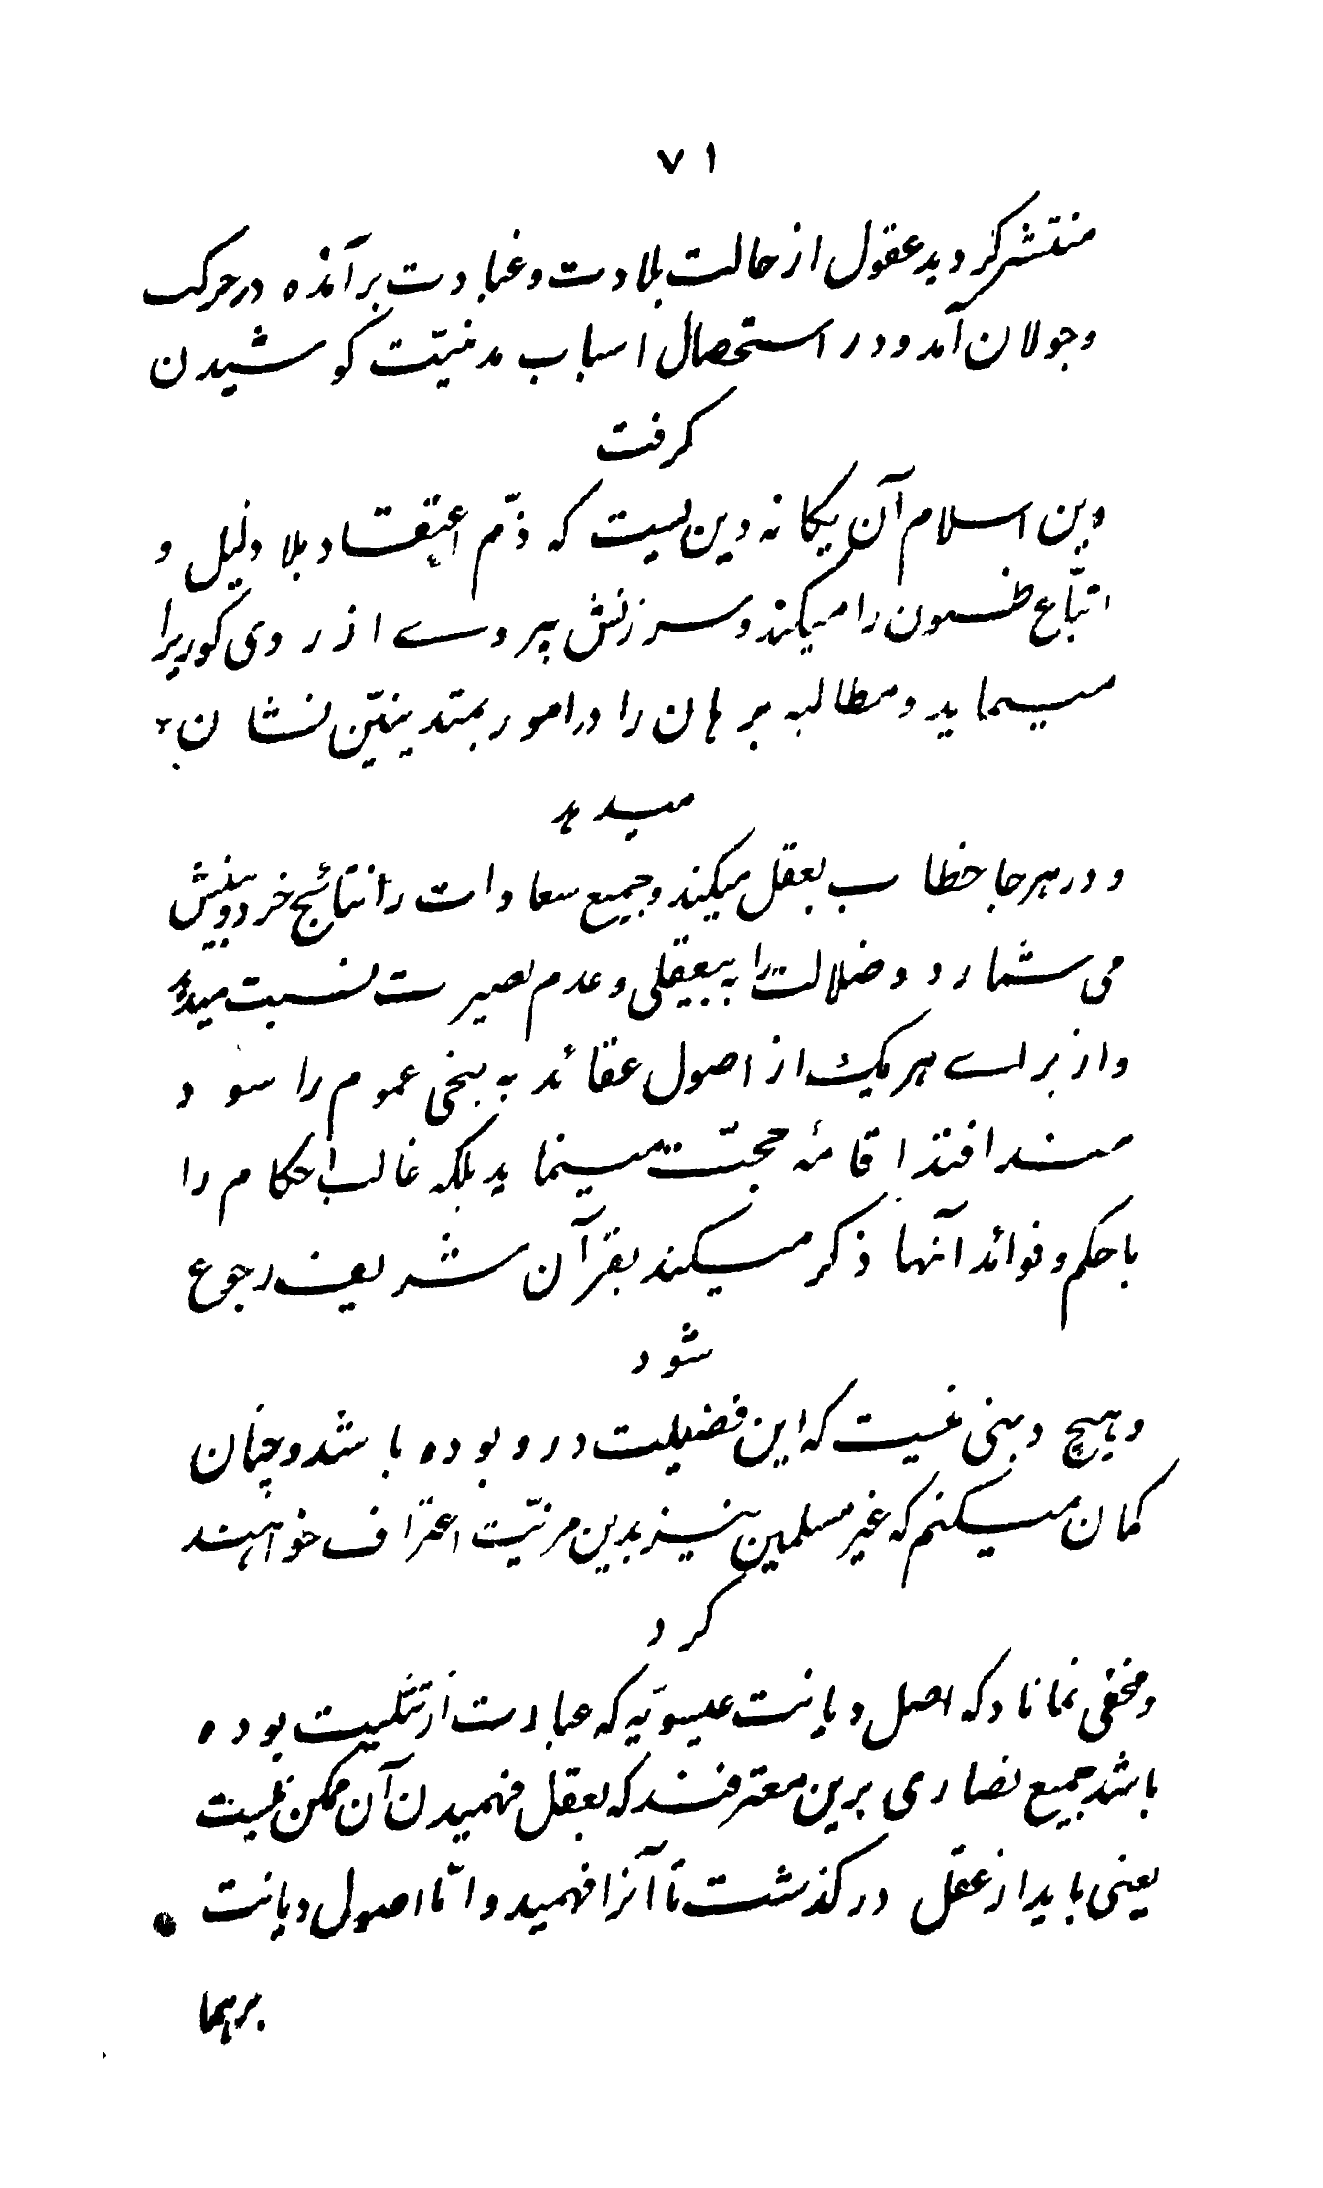 ۷۱
منتشر گردید عقول از حالت بلادت و غباوت برآمده در حرکت
و جولان آمد و در استحصال اسباب مدنیّت کوشیدن
گرفت
دین اسلام آن یگانه دینیست که ذمّ اعتقاد بلا دلیل و
اتبّاع ظنون را میکند و سرزنش پیروے از روی کوریرا
مینماید و مطالبه برهان را در امور بمتدینیّن نشان
میدهد
و در هر جا خطاب بعقل میکند و جمیع سعادات را نتائج خرد و بینش
می شمارد و ضلالت را به بیعقلی و عدم بصیرت نسبت میدهد
و از براے هر یک از اصول عقائد به نهجی عموم را سود
مند افتد اقامهٔ حجّت مینماید بلکه غالب احکام را
با حکم و فوائد آنها ذکر میکند بقرآن شریف رجوع
شود
و هیچ دینی نیست که این فضیلت در و بوده باشد و چنان
گمان میکنم که غیر مسلمین نیز بدین مزیّت اعتراف خواهند
کرد
و مخفی نماناد که اصل دیانت عیسویّه که عبارت از تثلیث بوده
باشد جمیع نصاری برین معترفند که بعقل فهمیدن آن ممکن نیست
یعنی باید از عقل در گذشت تا آنرا فهمید و امّا اصول دیانت
برهما